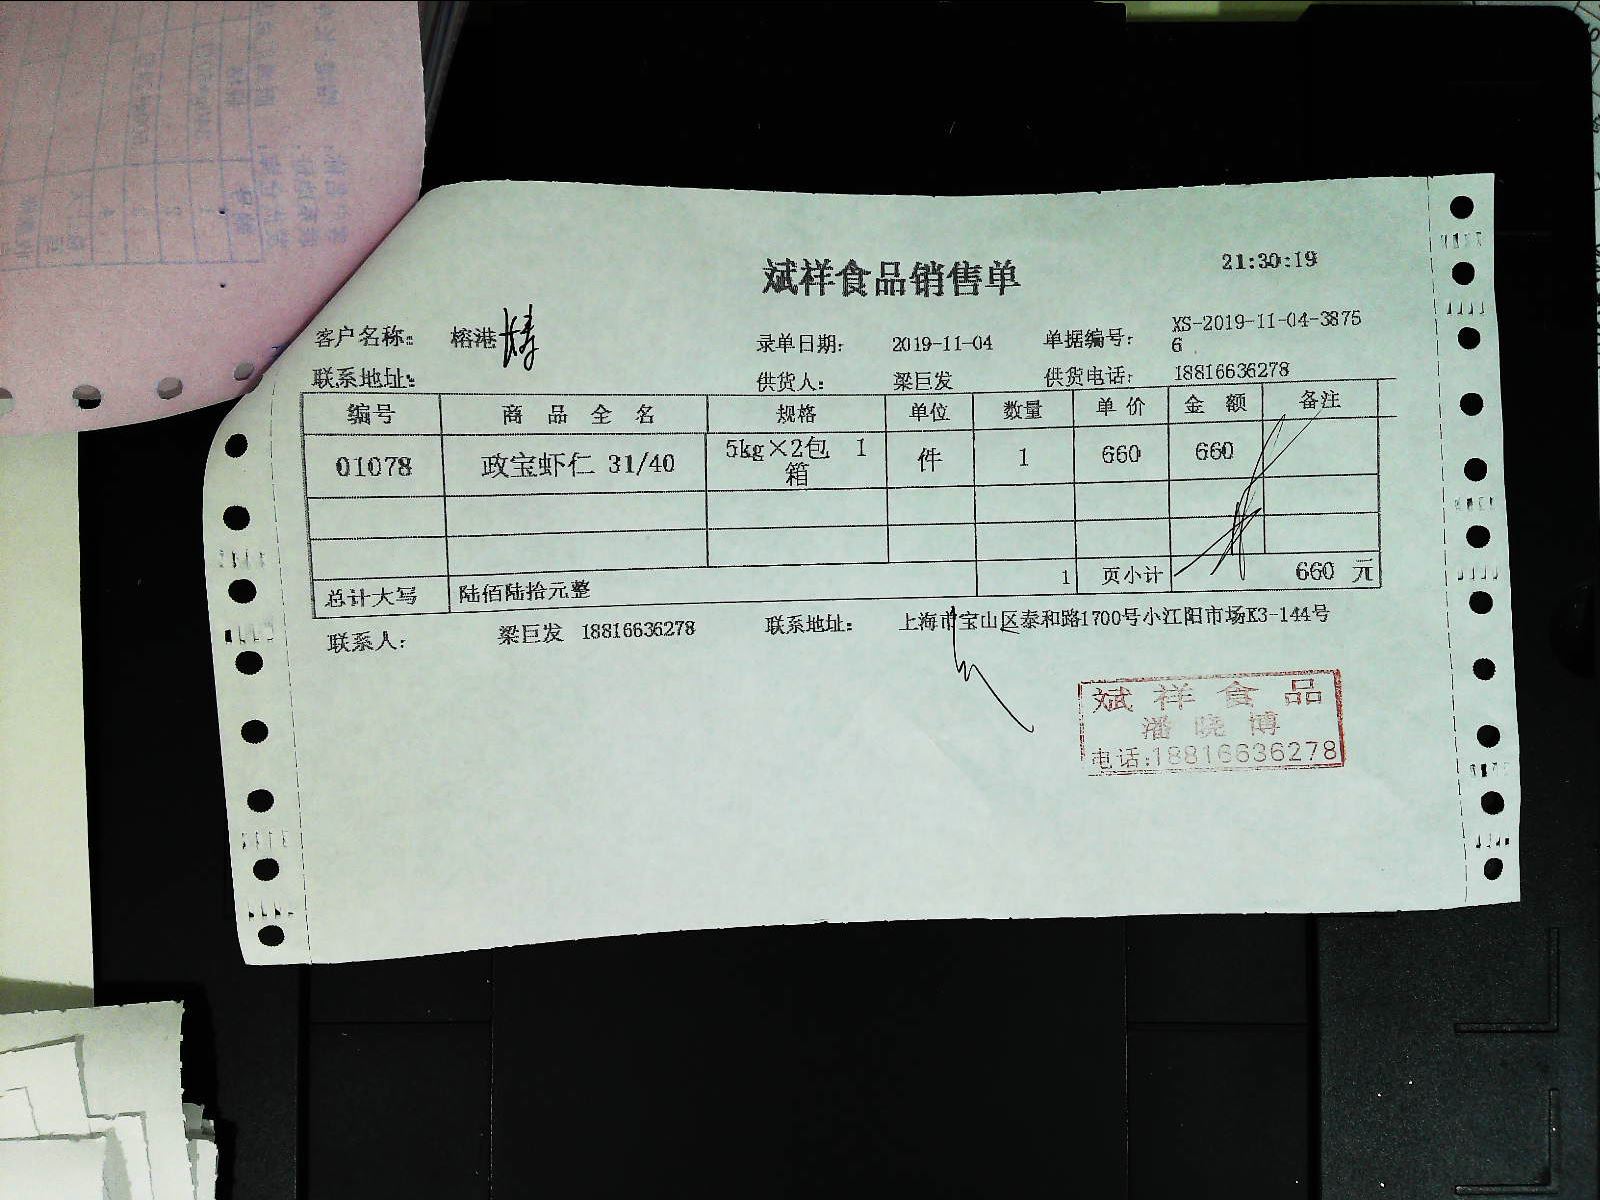 斌祥食品销售单
21:30:19
客户名称: 榕港
录单日期: 2019-11-04 单据编号: XS-2019-11-04-3875
6
联系地址: 供货人: 梁巨发 供货电话: 18816636278
编号 商品全名 规格 单位 数量 单价 金额 备注
01078 政宝虾仁 31/40 5kg×2包 1箱 件 1 660 660
总计大写 陆佰陆拾元整 1 页小计 660 元
联系人: 梁巨发 18816636278 联系地址: 上海市宝山区泰和路1700号小江阳市场K3-144号
斌祥食品
潘晓博
电话:18816636278